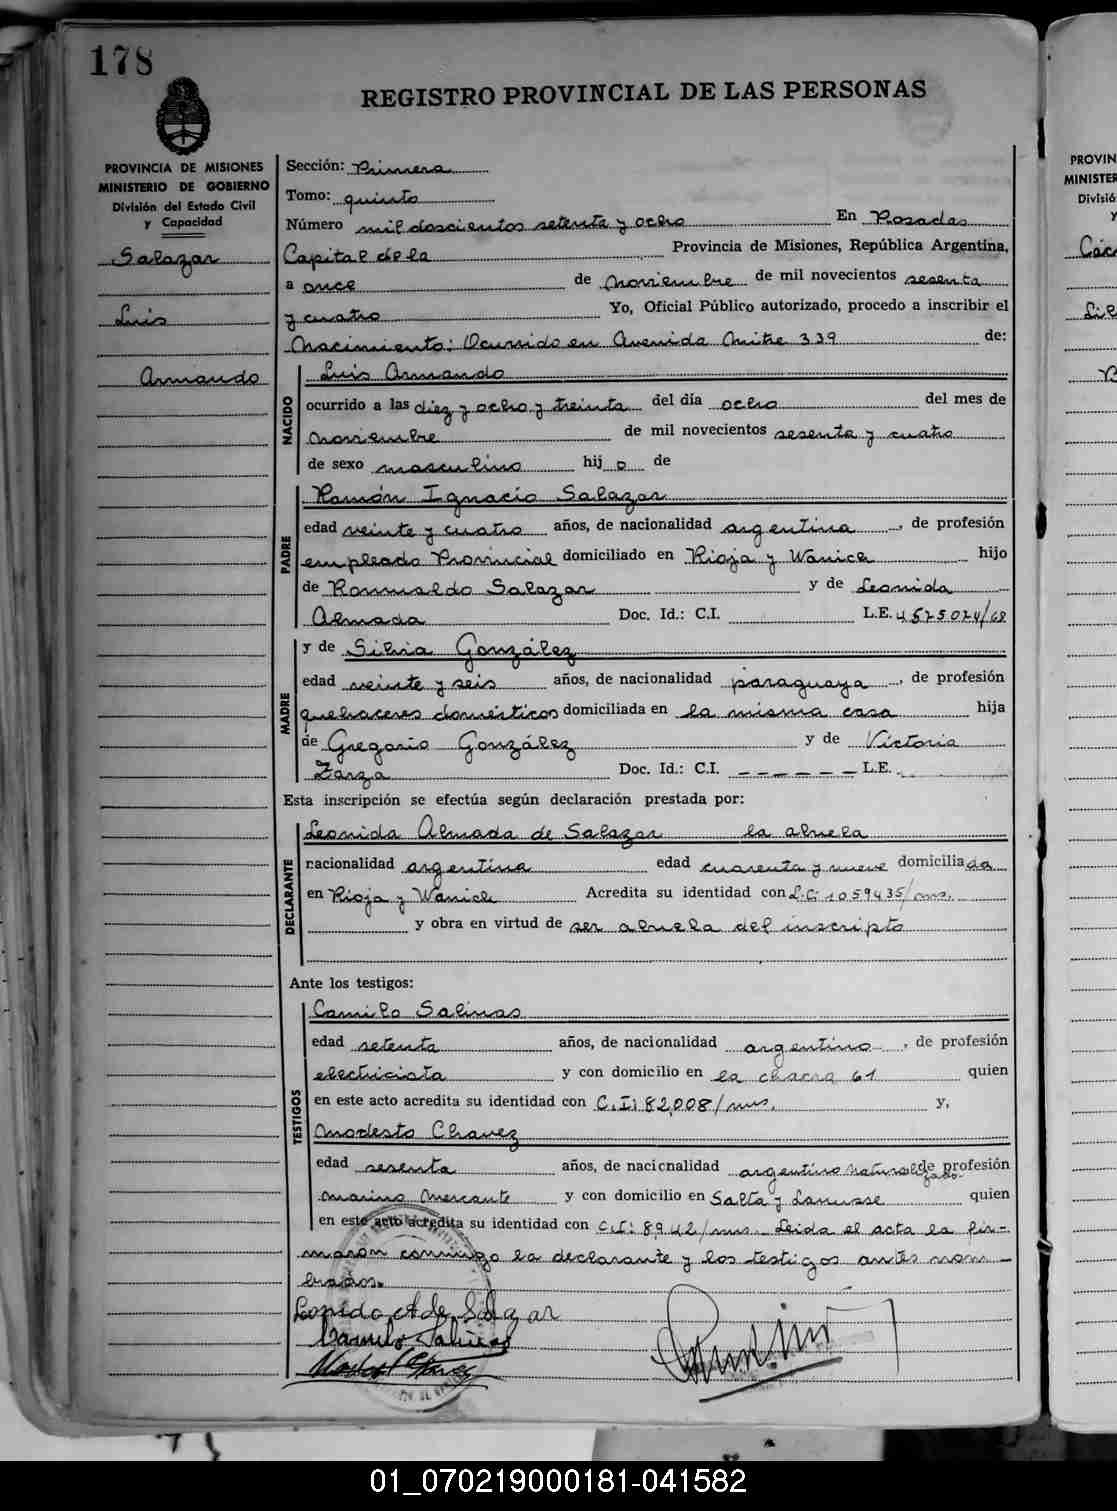 178
REGISTRO PROVINCIAL DE LAS PERSONAS
PROVINCIA DE MISIONES
MINISTERIO DE GOBIERNO
División del Estado Civil
y Capacidad
Salazar
Luis
Armando
Sección: Primera
Tomo: quinto
Número mil doscientos setenta y ocho En Posadas
Capital de la Provincia de Misiones, República Argentina,
a once de noviembre de mil novecientos sesenta
y cuatro Yo, Oficial Público autorizado, procedo a inscribir el
Nacimiento: Ocurrido en Avenida Mitre 339 de:
NACIDO
Luis Armando
ocurrido a las diez y ocho y treinta del día ocho del mes de
noviembre de mil novecientos sesenta y cuatro
de sexo masculino hijo de
PADRE
Ramón Ignacio Salazar
edad veinte y cuatro años, de nacionalidad argentina, de profesión
empleado Provincial domiciliado en Rioja y Wanick hijo
de Romualdo Salazar y de Leonida
Almada Doc. Id.: C.I. L.E. 4525024/68
MADRE
y de Silvia González
edad veinte y seis años, de nacionalidad paraguaya, de profesión
quehaceres domésticos domiciliada en la misma casa hija
de Gregorio González y de Victoria
Zarza Doc. Id.: C.I. — — — — — — L.E.
Esta inscripción se efectúa según declaración prestada por:
DECLARANTE
Leonida Almada de Salazar la abuela
nacionalidad argentina edad cuarenta y nueve domiciliada
en Rioja y Wanick Acredita su identidad con L.C. 1059435/ms.
y obra en virtud de ser abuela del inscripto
Ante los testigos:
TESTIGOS
Camilo Salinas
edad setenta años, de nacionalidad argentino, de profesión
electricista y con domicilio en la chacra 61 quien
en este acto acredita su identidad con C.I: 82.008/mns. y,
Modesto Chavez
edad sesenta años, de nacionalidad argentino naturalizado de profesión
marino mercante y con domicilio en Salta y Lanusse quien
en este acto acredita su identidad con C.I: 8942/mns. Leida el acta la fir-
maron conmigo la declarante y los testigos antes nom-
brados.
Lonida A de Salazar
Camilo Salinas
01_070219000181-041582